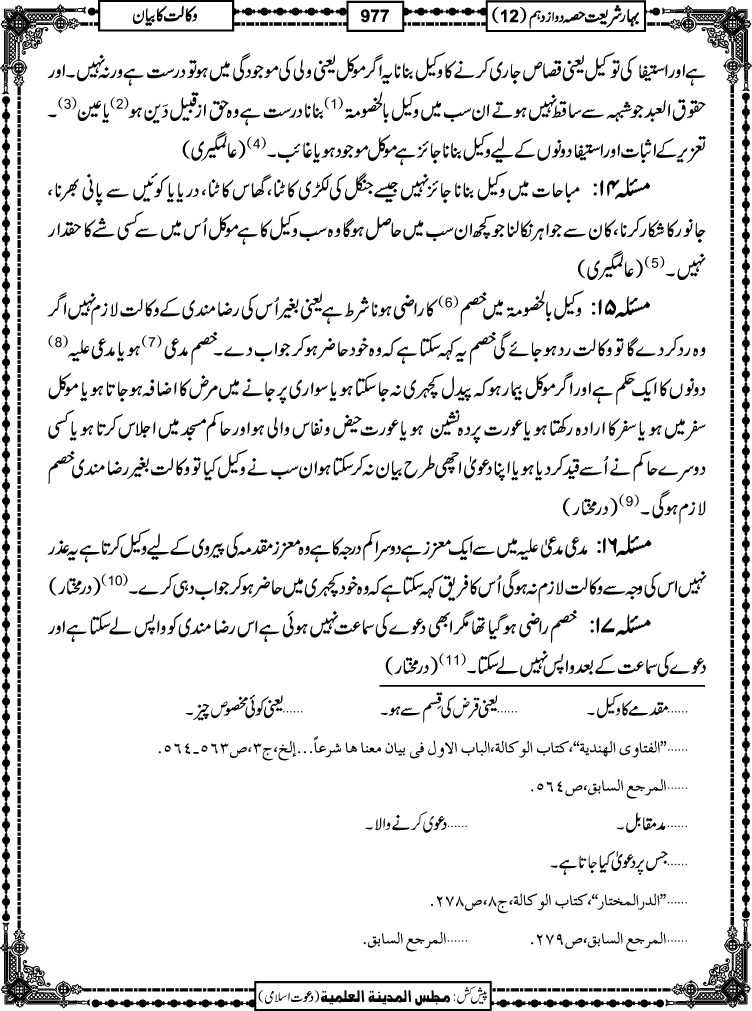 بہارِ شریعت حصہ دوازدہم (12)
977
وکالت کا بیان
ہے اور استیفا کی توکیل یعنی قصاص جاری کرنے کا وکیل بنانا یہ اگر موکل یعنی ولی کی موجودگی میں ہو تو درست ہے ورنہ نہیں۔ اور
حقوق العبد جو شبہہ سے ساقط نہیں ہوتے ان سب میں وکیل بالخصومۃ (1) بنانا درست ہے وہ حق از قبیل دَین ہو (2) یا عین (3) ۔
تعزیر کے اثبات اور استیفا دونوں کے لیے وکیل بنانا جائز ہے موکل موجود ہو یا غائب۔ (4) (عالمگیری)
مسئلہ ۱۴: مباحات میں وکیل بنانا جائز نہیں جیسے جنگل کی لکڑی کاٹنا، گھاس کاٹنا، دریا یا کوئیں سے پانی بھرنا،
جانور کا شکار کرنا، کان سے جواہر نکالنا جو کچھ ان سب میں حاصل ہوگا وہ سب وکیل کا ہے موکل اُس میں سے کسی شے کا حقدار
نہیں۔ (5) (عالمگیری)
مسئلہ ۱۵: وکیل بالخصومۃ میں خصم (6) کا راضی ہونا شرط ہے یعنی بغیر اُس کی رضا مندی کے وکالت لازم نہیں اگر
وہ رد کر دے گا تو وکالت رد ہو جائے گی خصم یہ کہہ سکتا ہے کہ وہ خود حاضر ہو کر جواب دے۔ خصم مدعی (7) ہو یا مدعی علیہ (8)
دونوں کا ایک حکم ہے اور اگر موکل بیمار ہو کہ پیدل کچہری نہ جا سکتا ہو یا سواری پر جانے میں مرض کا اضافہ ہو جاتا ہو یا موکل
سفر میں ہو یا سفر کا ارادہ رکھتا ہو یا عورت پردہ نشین ہو یا عورت حیض و نفاس والی ہو اور حاکم مسجد میں اجلاس کرتا ہو یا کسی
دوسرے حاکم نے اُسے قید کر دیا ہو یا اپنا دعویٰ اچھی طرح بیان نہ کر سکتا ہو ان سب نے وکیل کیا تو وکالت بغیر رضا مندی خصم
لازم ہوگی۔ (9) (درمختار)
مسئلہ ۱۶: مدعی مدعیٰ علیہ میں سے ایک معزز ہے دوسرا کم درجہ کا ہے وہ معزز مقدمہ کی پیروی کے لیے وکیل کرتا ہے یہ عذر
نہیں اس کی وجہ سے وکالت لازم نہ ہوگی اُس کا فریق کہہ سکتا ہے کہ وہ خود کچہری میں حاضر ہو کر جواب دہی کرے۔ (10) (درمختار)
مسئلہ ۱۷: خصم راضی ہو گیا تھا مگر ابھی دعوے کی سماعت نہیں ہوئی ہے اس رضا مندی کو واپس لے سکتا ہے اور
دعوے کی سماعت کے بعد واپس نہیں لے سکتا۔ (11) (درمختار)
......مقدمے کا وکیل۔ ......یعنی قرض کی قسم سے ہو۔ ......یعنی کوئی مخصوص چیز۔
......”الفتاوی الهندية“،کتاب الوکالة،الباب الاول فی بیان معناها شرعاً...إلخ،ج٣،ص٥٦٣ـ٥٦٤.
......المرجع السابق،ص٥٦٤.
......مدمقابل۔ ......دعوی کرنے والا۔
......جس پر دعویٰ کیا جاتا ہے۔
......”الدرالمختار“،کتاب الوکالة،ج٨،ص٢٧٨.
......المرجع السابق،ص٢٧٩. ......المرجع السابق.
پیش کش: مجلس المدينة العلمية (دعوت اسلامی)